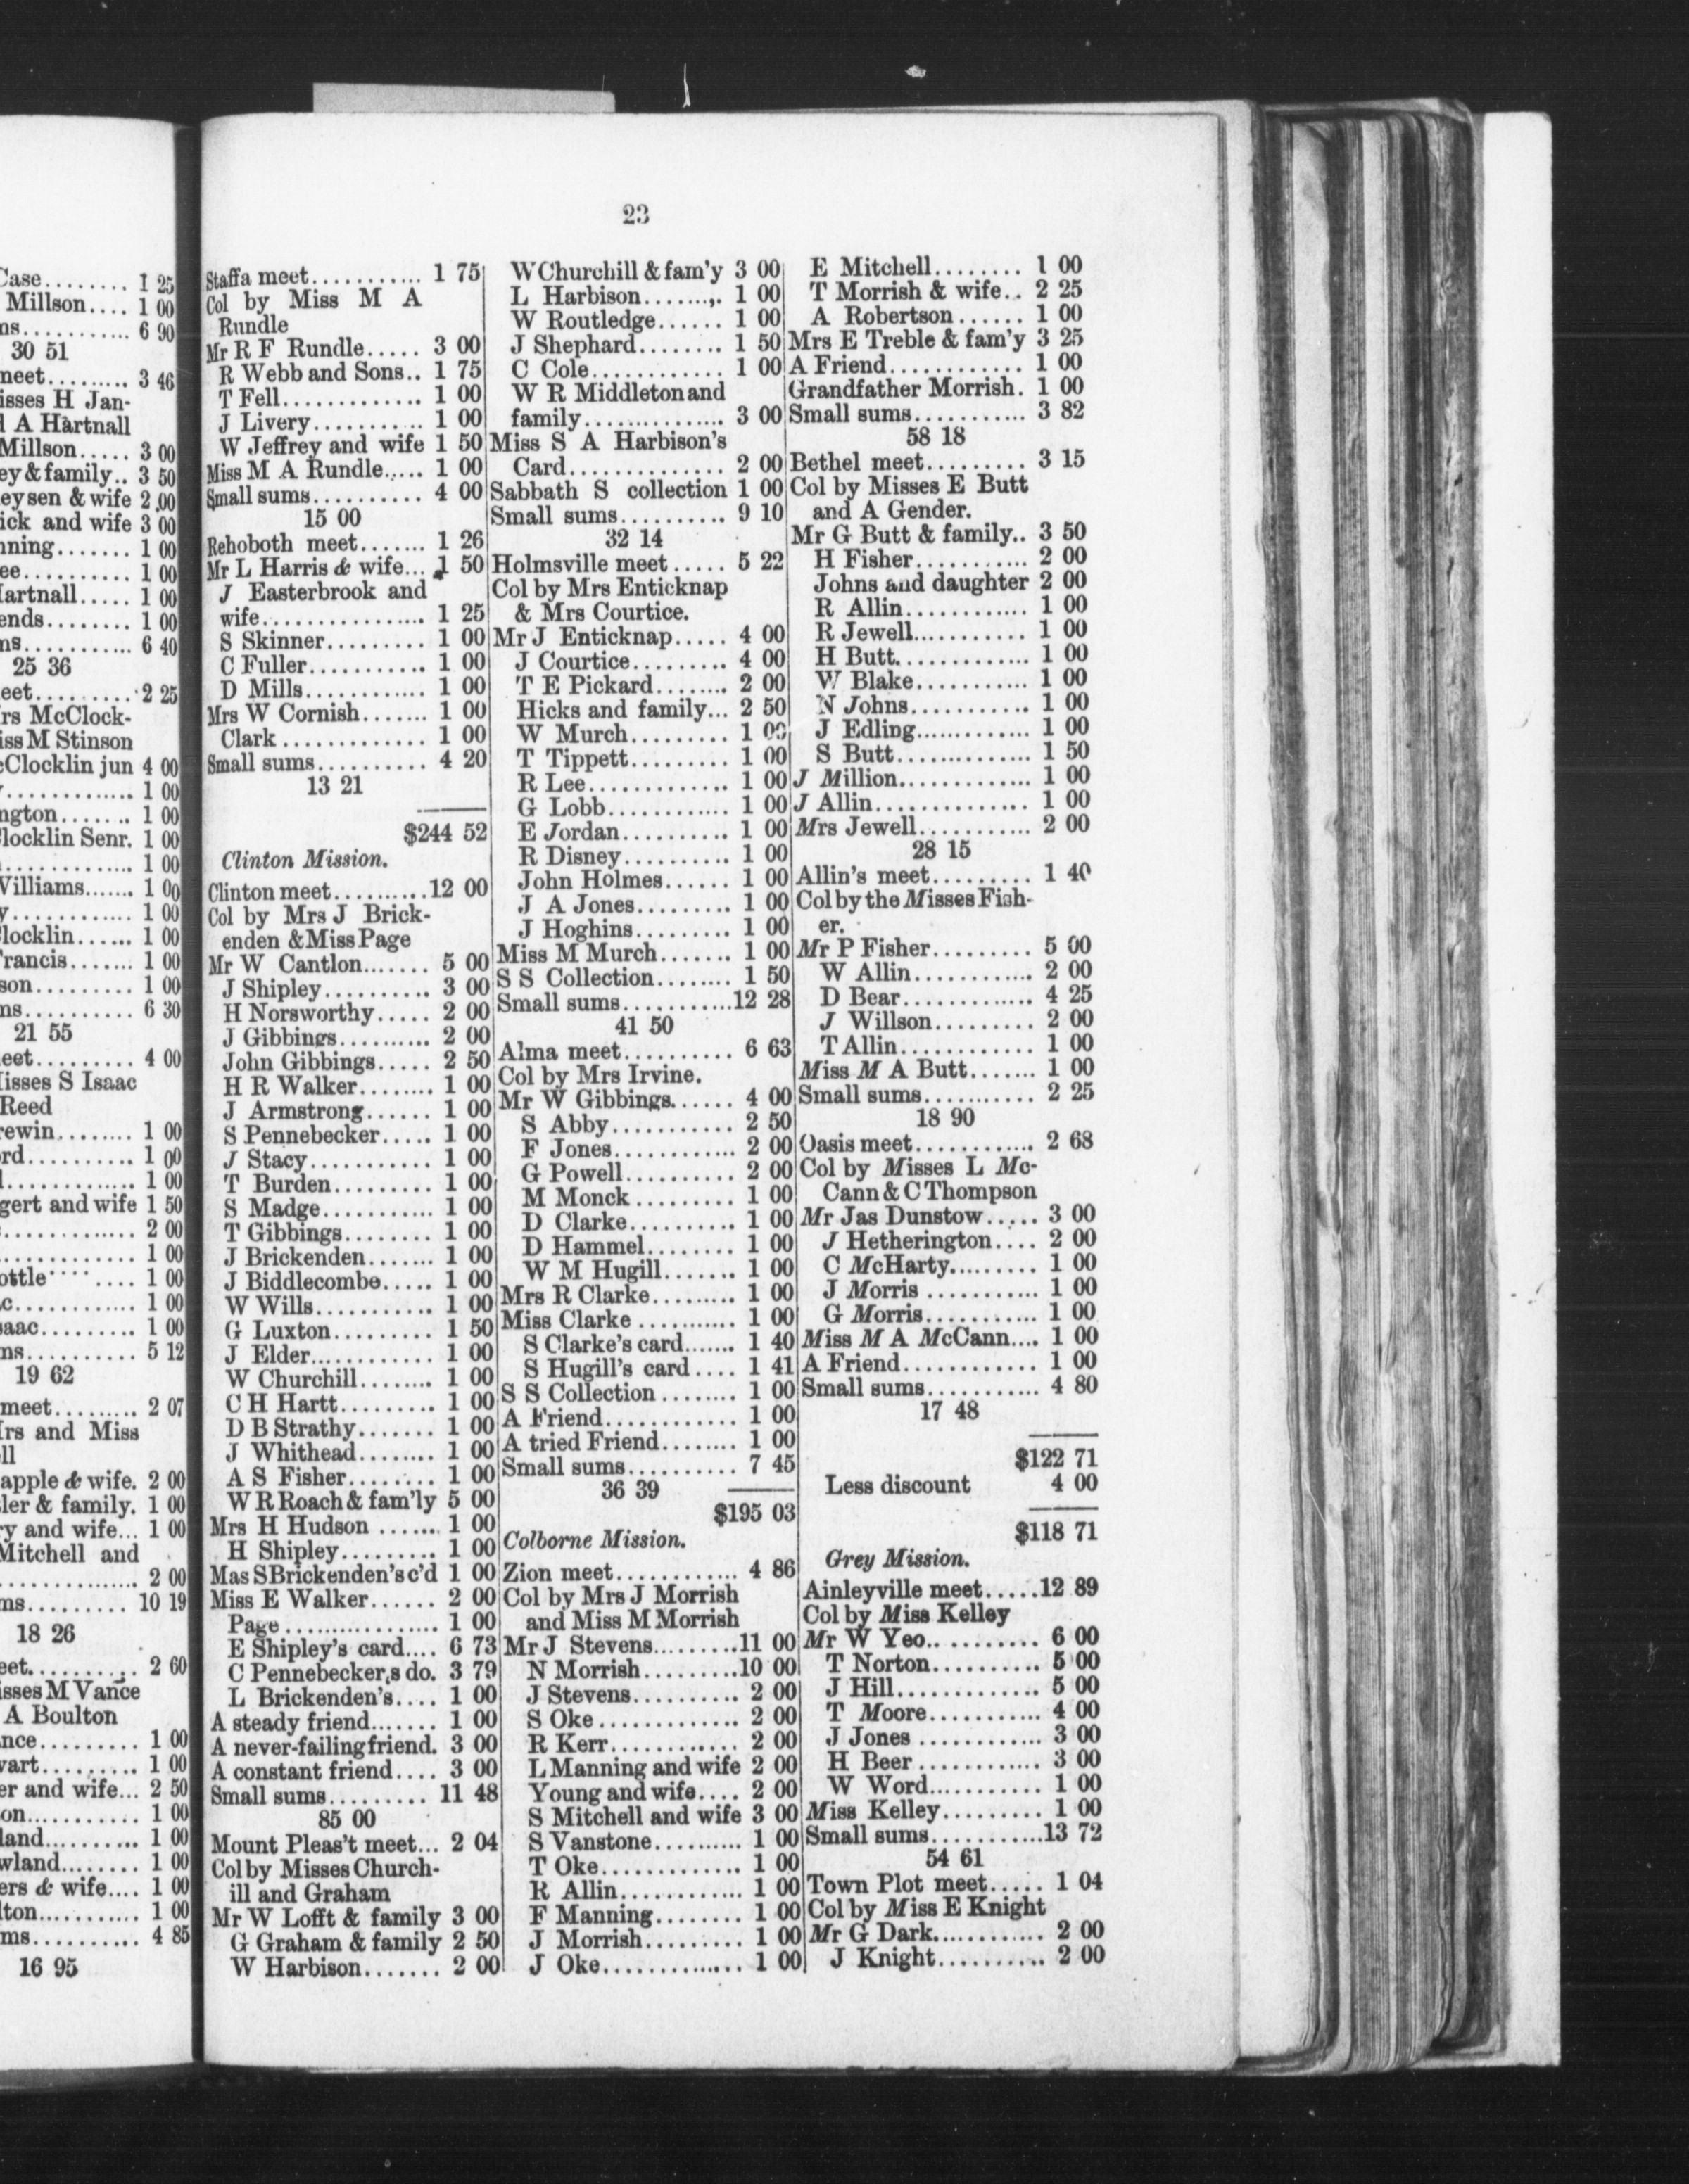 Case........ 1 25
Millson.... 1 00
6 90
30 51
meet......... 3 46
isses H Jan-
A Hartnall
Millson..... 3 00
ey & family.. 3 50
eysen & wife 2 00
ick and wife 3 00
nning....... 1 00
ee.......... 1 00
artnall..... 1 00
ends........ 1 00
ns........... 6 40
25 36
eet......... 2 25
rs McClock-
iss M Stinson
cClocklin jun 4 00
............. 1 00
ngton....... 1 00
locklin Senr. 1 00
............. 1 00
Williams....... 1 00
y............ 1 00
locklin...... 1 00
rancis....... 1 00
son......... 1 00
ns.......... 6 30
21 55
eet......... 4 00
isses S Isaac
Reed
rewin........ 1 00
rd.......... 1 00
............. 1 00
gert and wife 1 50
............. 2 00
............. 1 00
ottle .... 1 00
c............ 1 00
saac......... 1 00
ns.......... 5 12
19 62
meet......... 2 07
rs and Miss
ll
apple & wife. 2 00
ler & family. 1 00
ry and wife... 1 00
Mitchell and
............. 2 00
ms......... 10 19
18 26
eet.......... 2 60
isses M Vance
A Boulton
nce......... 1 00
wart......... 1 00
er and wife... 2 50
on........... 1 00
land......... 1 00
wland........ 1 00
ers & wife.... 1 00
lton........... 1 00
ms.......... 4 85
16 95
23
Staffa meet........... 1 75
Col by Miss M A
Rundle
Mr R F Rundle..... 3 00
R Webb and Sons.. 1 75
T Fell............. 1 00
J Livery........... 1 00
W Jeffrey and wife 1 50
Miss M A Rundle..... 1 00
Small sums.......... 4 00
15 00
Rehoboth meet....... 1 26
Mr L Harris & wife... 1 50
J Easterbrook and
wife................ 1 25
S Skinner......... 1 00
C Fuller........... 1 00
D Mills............ 1 00
Mrs W Cornish....... 1 00
Clark ............. 1 00
Small sums.......... 4 20
13 21
$244 52
Clinton Mission.
Clinton meet..........12 00
Col by Mrs J Brick-
enden & Miss Page
Mr W Cantlon....... 5 00
J Shipley.......... 3 00
H Norsworthy..... 2 00
J Gibbings.......... 2 00
John Gibbings..... 2 50
H R Walker........ 1 00
J Armstrong...... 1 00
S Pennebecker..... 1 00
J Stacy........... 1 00
T Burden......... 1 00
S Madge........... 1 00
T Gibbings......... 1 00
J Brickenden....... 1 00
J Biddlecombe..... 1 00
W Wills........... 1 00
G Luxton......... 1 50
J Elder............ 1 00
W Churchill........ 1 00
C H Hartt......... 1 00
D B Strathy....... 1 00
J Whithead........ 1 00
A S Fisher......... 1 00
W R Roach & fam'ly 5 00
Mrs H Hudson ....... 1 00
H Shipley......... 1 00
Mas S Brickenden's c'd 1 00
Miss E Walker...... 2 00
Page................. 1 00
E Shipley's card.... 6 73
C Pennebecker,s do. 3 79
L Brickenden's.... 1 00
A steady friend....... 1 00
A never-failing friend. 3 00
A constant friend.... 3 00
Small sums......... 11 48
85 00
Mount Pleas't meet... 2 04
Col by Misses Church-
ill and Graham
Mr W Lofft & family 3 00
G Graham & family 2 50
W Harbison....... 2 00
W Churchill & fam'y 3 00
L Harbison........ 1 00
W Routledge...... 1 00
J Shephard........ 1 50
C Cole............ 1 00
W R Middleton and
family............... 3 00
Miss S A Harbison's
Card.............. 2 00
Sabbath S collection 1 00
Small sums.......... 9 10
32 14
Holmsville meet ..... 5 22
Col by Mrs Enticknap
& Mrs Courtice.
Mr J Enticknap..... 4 00
J Courtice......... 4 00
T E Pickard........ 2 00
Hicks and family... 2 50
W Murch......... 1 00
T Tippett......... 1 00
R Lee............. 1 00
G Lobb............ 1 00
E Jordan.......... 1 00
R Disney.......... 1 00
John Holmes...... 1 00
J A Jones......... 1 00
J Hoghins......... 1 00
Miss M Murch....... 1 00
S S Collection........ 1 50
Small sums...........12 28
41 50
Alma meet.......... 6 63
Col by Mrs Irvine.
Mr W Gibbings...... 4 00
S Abby........... 2 50
F Jones............ 2 00
G Powell.......... 2 00
M Monck ......... 1 00
D Clarke.......... 1 00
D Hammel........ 1 00
W M Hugill....... 1 00
Mrs R Clarke......... 1 00
Miss Clarke ........... 1 00
S Clarke's card....... 1 40
S Hugill's card .... 1 41
S S Collection ........ 1 00
A Friend............ 1 00
A tried Friend........ 1 00
Small sums.......... 7 45
36 39
$195 03
Colborne Mission.
Zion meet............ 4 86
Col by Mrs J Morrish
and Miss M Morrish
Mr J Stevens.........11 00
N Morrish.........10 00
J Stevens.......... 2 00
S Oke.............. 2 00
R Kerr............. 2 00
L Manning and wife 2 00
Young and wife.... 2 00
S Mitchell and wife 3 00
S Vanstone.......... 1 00
T Oke.............. 1 00
R Allin............ 1 00
F Manning........ 1 00
J Morrish.......... 1 00
J Oke.............. 1 00
E Mitchell........ 1 00
T Morrish & wife.. 2 25
A Robertson...... 1 00
Mrs E Treble & fam'y 3 25
A Friend............ 1 00
Grandfather Morrish. 1 00
Small sums........... 3 82
58 18
Bethel meet......... 3 15
Col by Misses E Butt
and A Gender.
Mr G Butt & family.. 3 50
H Fisher........... 2 00
Johns and daughter 2 00
R Allin............ 1 00
R Jewell........... 1 00
H Butt............. 1 00
W Blake........... 1 00
N Johns........... 1 00
J Edling............ 1 00
S Butt.............. 1 50
J Million............. 1 00
J Allin............... 1 00
Mrs Jewell........... 2 00
28 15
Allin's meet......... 1 40
Col by the Misses Fish-
er.
Mr P Fisher......... 5 00
W Allin............ 2 00
D Bear............. 4 25
J Willson......... 2 00
T Allin............. 1 00
Miss M A Butt....... 1 00
Small sums........... 2 25
18 90
Oasis meet............ 2 68
Col by Misses L Mc-
Cann & C Thompson
Mr Jas Dunstow..... 3 00
J Hetherington.... 2 00
C McHarty......... 1 00
J Morris ........... 1 00
G Morris........... 1 00
Miss M A McCann.... 1 00
A Friend............ 1 00
Small sums........... 4 80
17 48
$122 71
Less discount 4 00
$118 71
Grey Mission.
Ainleyville meet.....12 89
Col by Miss Kelley
Mr W Yeo........... 6 00
T Norton.......... 5 00
J Hill............. 5 00
T Moore........... 4 00
J Jones ............ 3 00
H Beer............ 3 00
W Word........... 1 00
Miss Kelley......... 1 00
Small sums...........13 72
54 61
Town Plot meet..... 1 04
Col by Miss E Knight
Mr G Dark........... 2 00
J Knight.......... 2 00